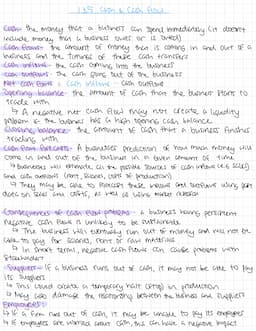 1.3.5 Cash & Cash Flow
Cash- the money that a business can spend immediately (it doesn't
include money that a business owes or is owed)
Cash flows- the amount of money that is coming in and out of a
business and the timings of these cash transfers
Cash inflows- the cash coming into the business
Cash outflows- the cash going out of the business
Net cash flow = cash inflows - cash outflows
Opening balance- the amount of cash that the business starts to
trade with
↳ A negative net cash flow may not create a liquidity
problem if the business has a high opening cash balance
Closing balance- the amount of cash that a business finishes
trading with
Cash flow forecasts- A businesses prediction of how much money will
come in and out of the business in a given amount of time
↳ Businesses will estimate all the possible sources of cash inflows (e.g sales)
and cash outflows (rent, loans, costs of production)
↳ They may be able to forecast these inflows and outflows using past
data on sales and costs, as well as using market research
Consequences of cash flow problems - a business having persistent
negative cash flow is unlikely to be sustainable
↳ The business will eventually run out of money and may not be
able to pay for loans, rent or raw materials
↳ In short term, negative cash flows can cause problems with
stakeholders
Suppliers- If a business runs out of cash, it may not be able to pay
its suppliers
↳ This could create a temporary halt (stop) in production
↳ May also damage the relationship between the business and suppliers
Employees:
↳ If a firm runs out of cash, it may be unable to pay its employees
↳ If employees are worried about cash, this can have a negative impact